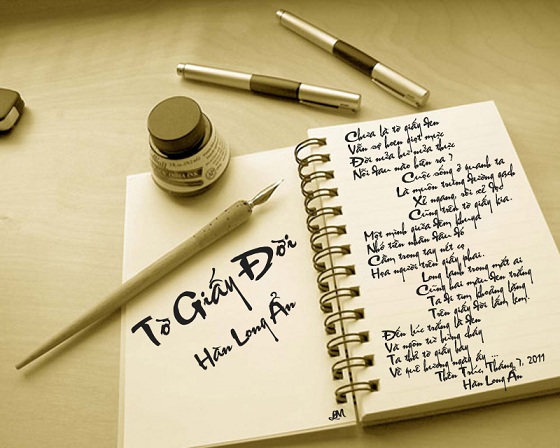 Tờ Giấy Đời
Hàn Long Ẩn
Chưa là tờ giấy đen
Vẫn sợ hoen giọt mực
Đời nửa hư nửa thực
Nỗi đau nào hiện ra ?
Cuộc sống ở quanh ta
Là muôn trùng đường gạch
Xẻ ngang, rồi xẻ dọc
Cũng trên tờ giấy kia.
Một mình giữa đêm khuya
Nhớ tiền nhân đâu đó
Cầm trong tay nét cọ
Họa người trên giấy phai.
Long lanh trong mắt ai
Cũng hai màu đen trắng
Ta đi tìm khoảng lặng
Trên giấy đời lấm lem.
Đến lúc trắng là đen
Và ngôn từ bừng cháy
Ta thả tờ giấy bay
Về quê hương ngày ấy ...
Thiền Trúc, Tháng 7, 2011
Hàn Long Ẩn